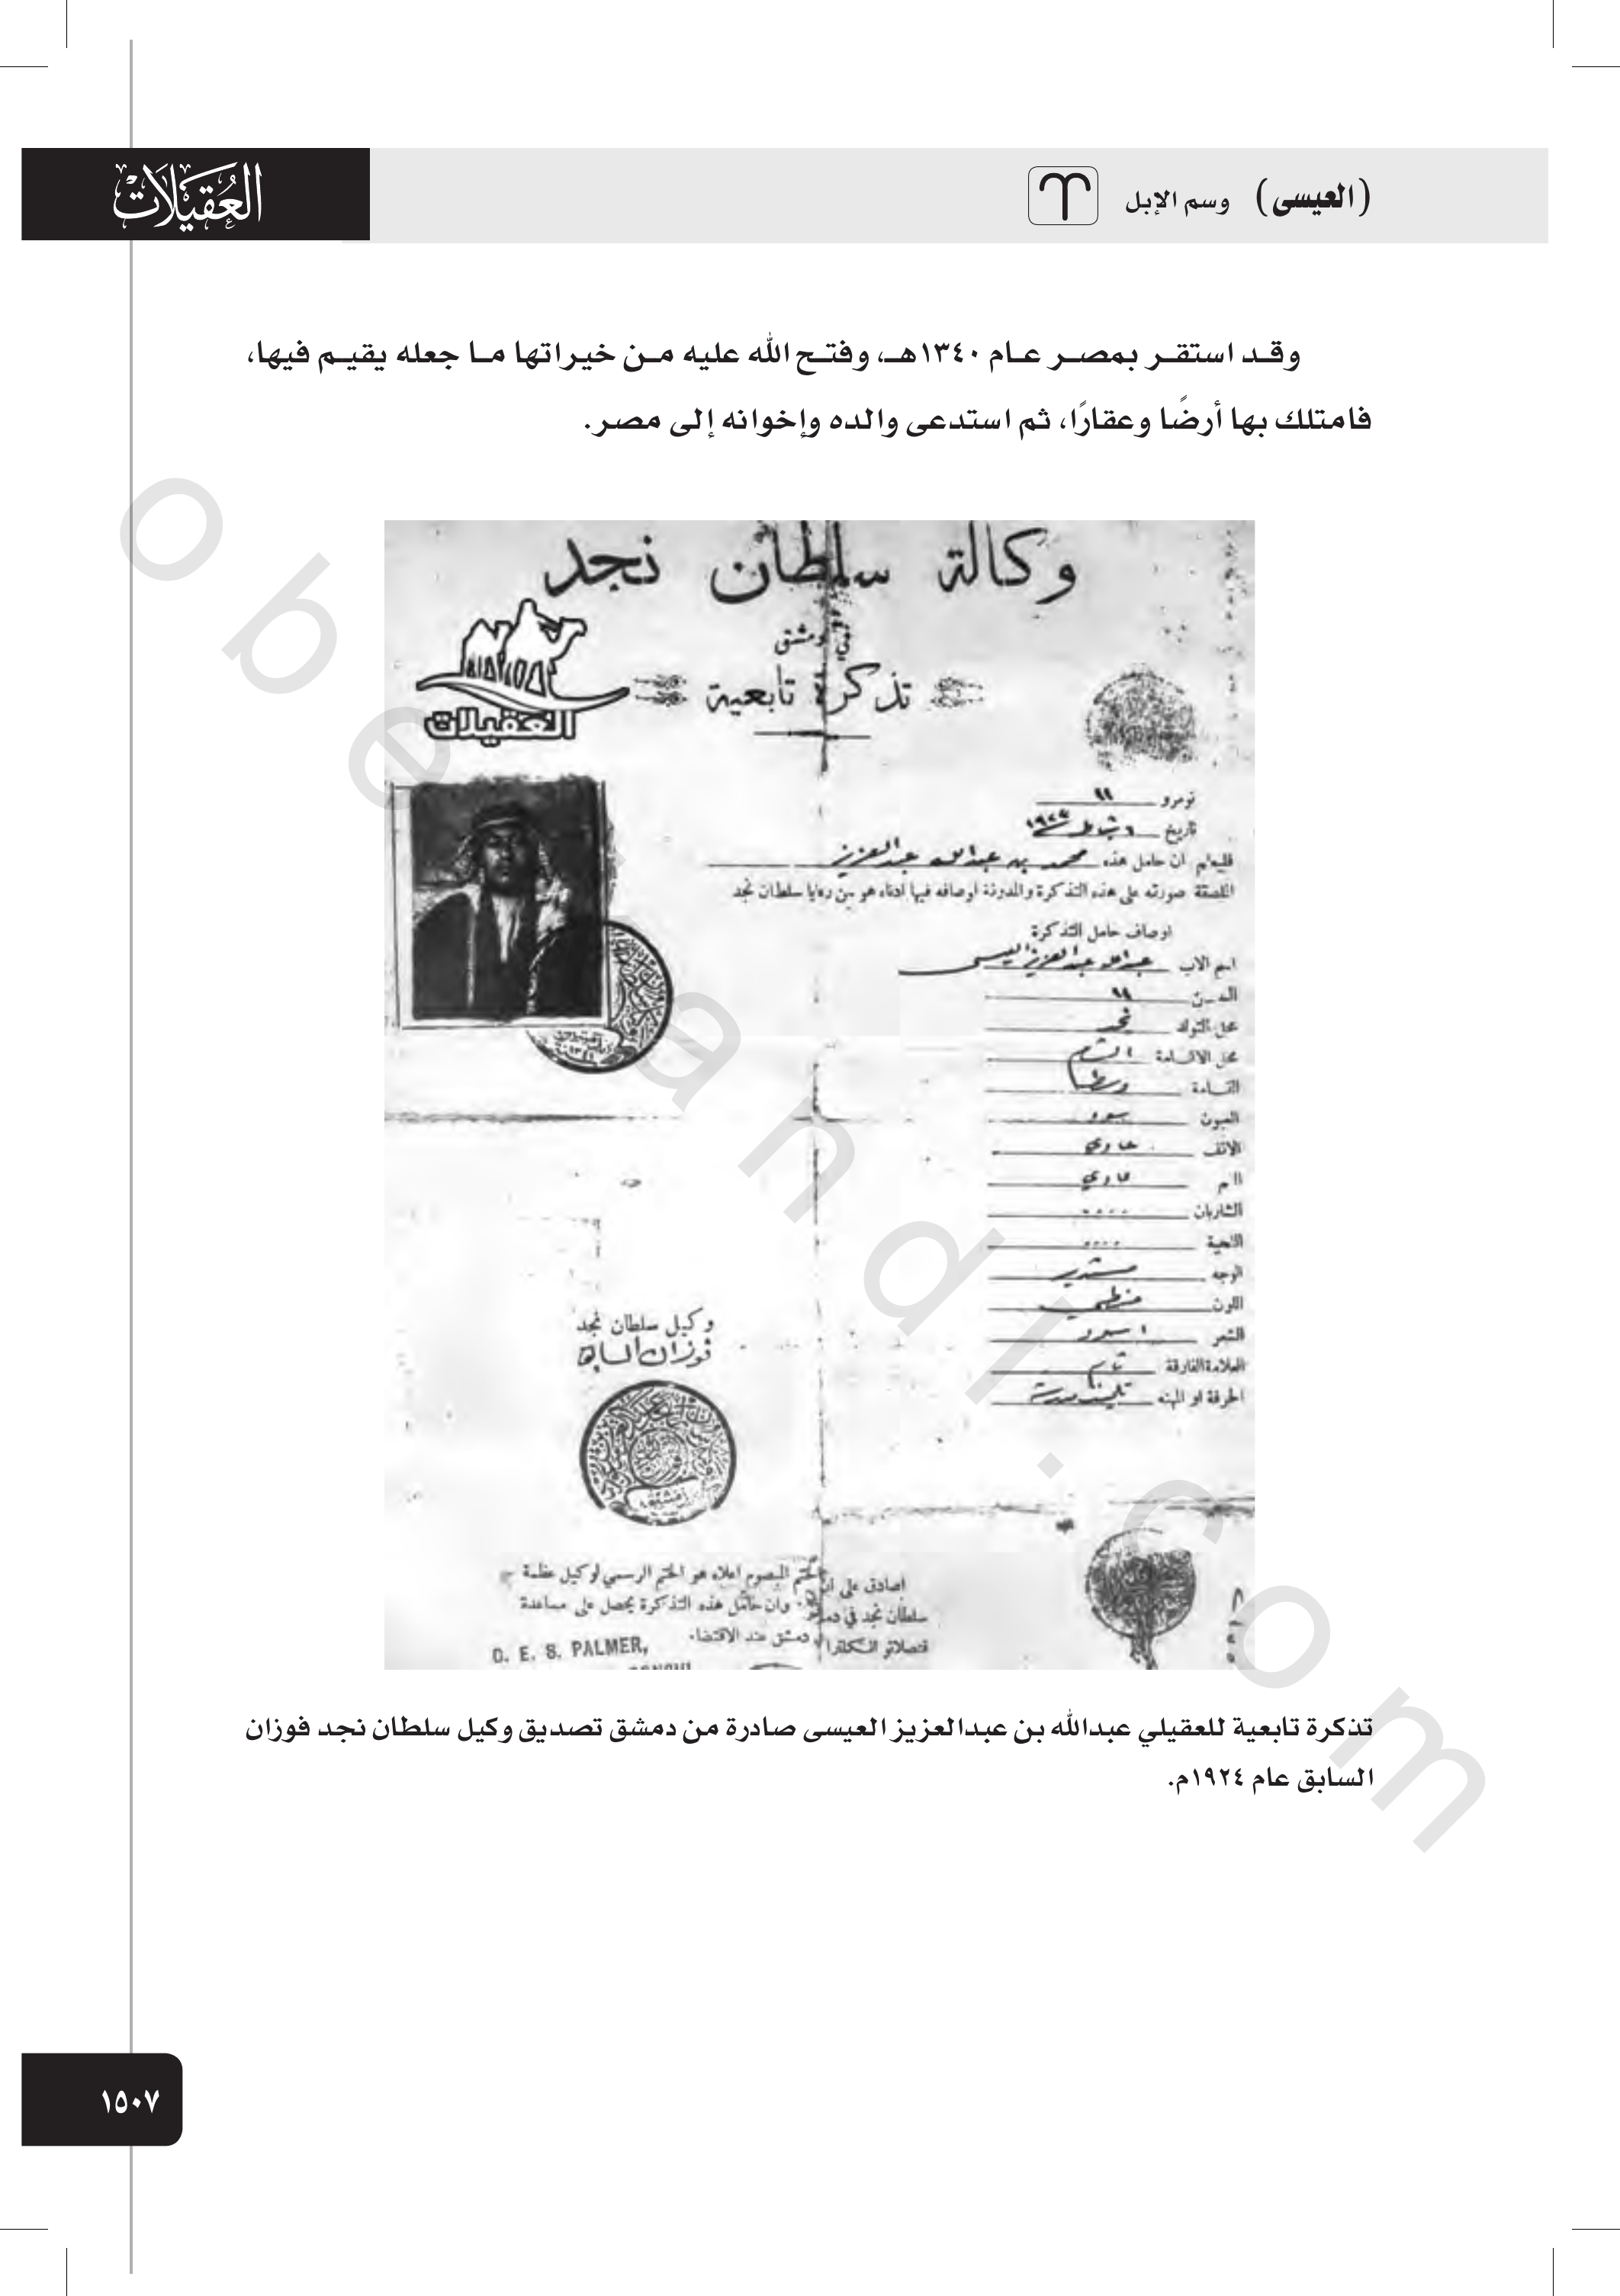 العقيلات
(العيسى) وسم الإبل
وقد استقر بمصر عام ١٣٤٠هـ، وفتح الله عليه من خيراتها ما جعله يقيم فيها،
فامتلك بها أرضًا وعقارًا، ثم استدعى والده وإخوانه إلى مصر.
وكالة سلطان نجد
في دمشق
تذكرة تابعية
العقيلات
نومرو ١١
تاريخ ٦ شباط
فليعلم ان حامل هذه محمد بن عبدالله عبدالعزيز
الملصقة صورته على هذه التذكرة والمدونة اوصافه فيها ادناه هو من رعايا سلطان نجد
اوصاف حامل التذكرة
اسم الاب عبدالله عبدالعزيز العيسى
السن
محل التولد نجد
محل الاقامة الشام
القامة وسط
العيون سود
الانف عادي
الفم عادي
الشاربان ....
اللحية ....
الوجه مستدير
اللون حنطي
الشعر اسود
العلامة الفارقة تام
الحرفة او المهنه تلميذ مدرسة
وكيل سلطان نجد
فوزان السابق
اصادق على ان الختم المبصوم اعلاه هو الختم الرسمي لوكيل عظمة
سلطان نجد في دمشق وان حامل هذه التذكرة يحصل على مساعدة
دمشق عند الاقتضاء.
PALMER,
تذكرة تابعية للعقيلي عبدالله بن عبدالعزيز العيسى صادرة من دمشق تصديق وكيل سلطان نجد فوزان
السابق عام ١٩٢٤م.
١٥٠٧
obeikandi.com